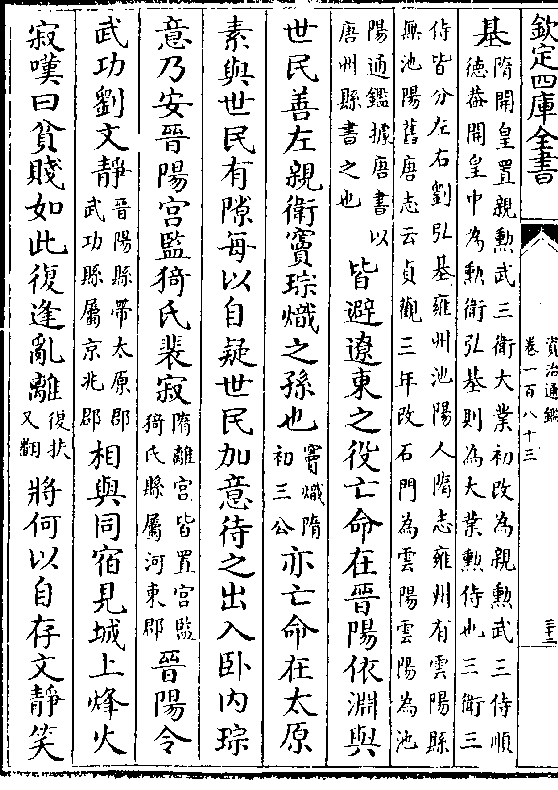 欽定四庫全書
資治通鑑
卷一百八十三
三十二
基隋開皇置親勲武三衛大業初改為親勲武三侍順
德葢開皇中為勲衛弘基則為大業勲侍也三衛三
侍皆分左右劉弘基雍州池陽人隋志雍州有雲陽縣
無池陽舊唐志云貞觀三年改石門為雲陽雲陽為池
陽通鑑據唐書以
唐州縣書之也
皆避遼東之役亡命在晉陽依淵與
世民善左親衛竇琮熾之孫也竇熾隋
初三公亦亡命在太原
素與世民有隙每以自疑世民加意待之出入卧内琮
意乃安晉陽宫監猗氏裴寂隋離宫皆置宫監
猗氏縣屬河東郡晉陽令
武功劉文靜晉陽縣帶太原郡
武功縣屬京兆郡相與同宿見城上烽火
寂嘆曰貧賤如此復逢亂離復扶
又翻將何以自存文靜笑